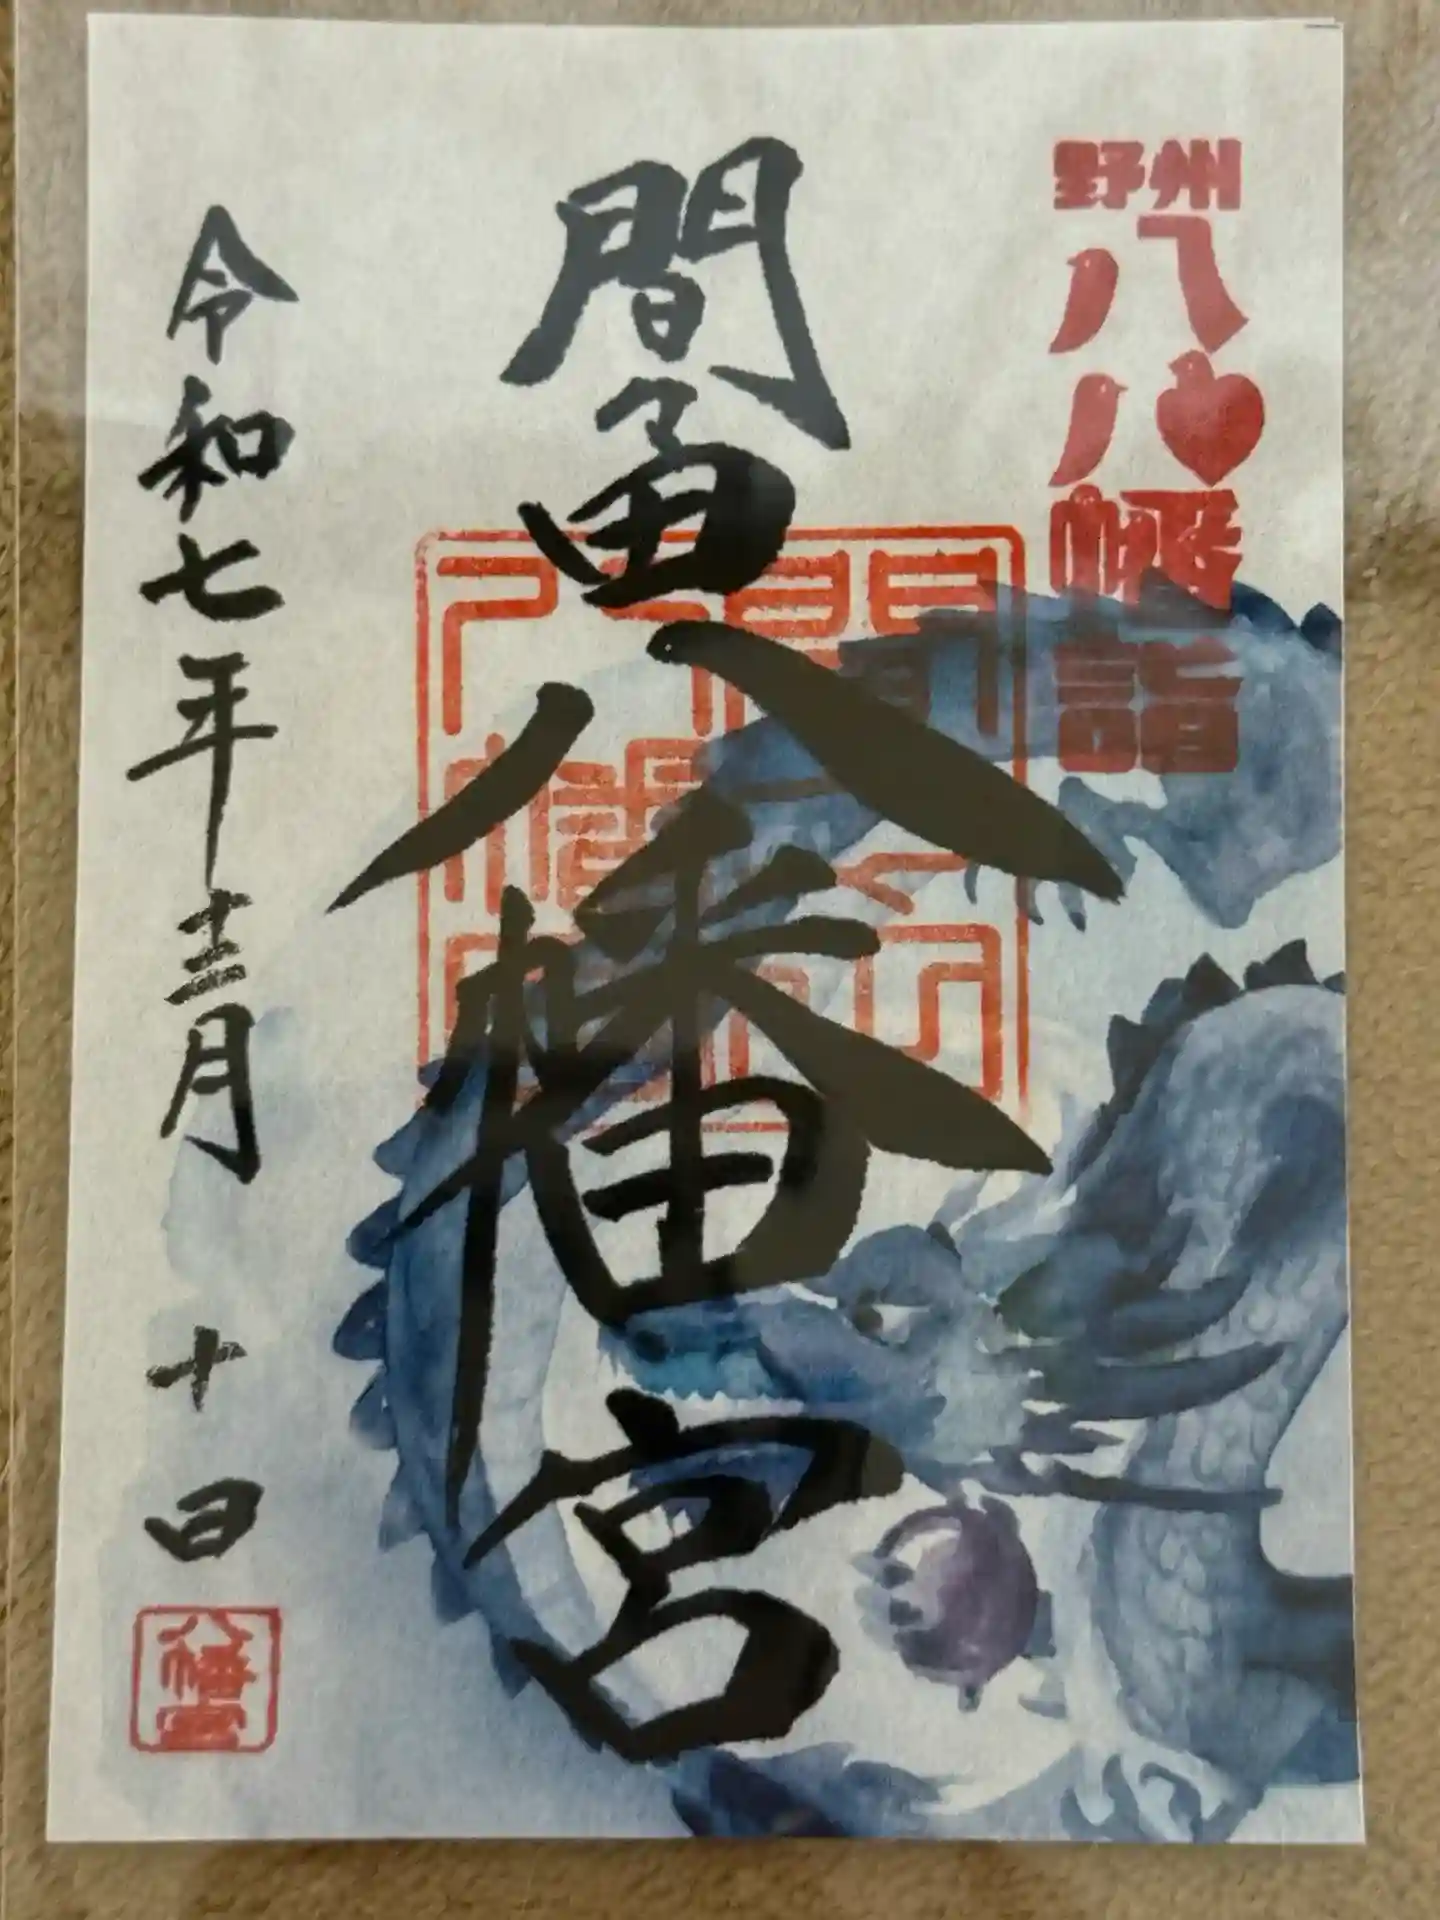 野州
八八幡詣
間々田八幡宮
令和七年十二月十日
八幡宮